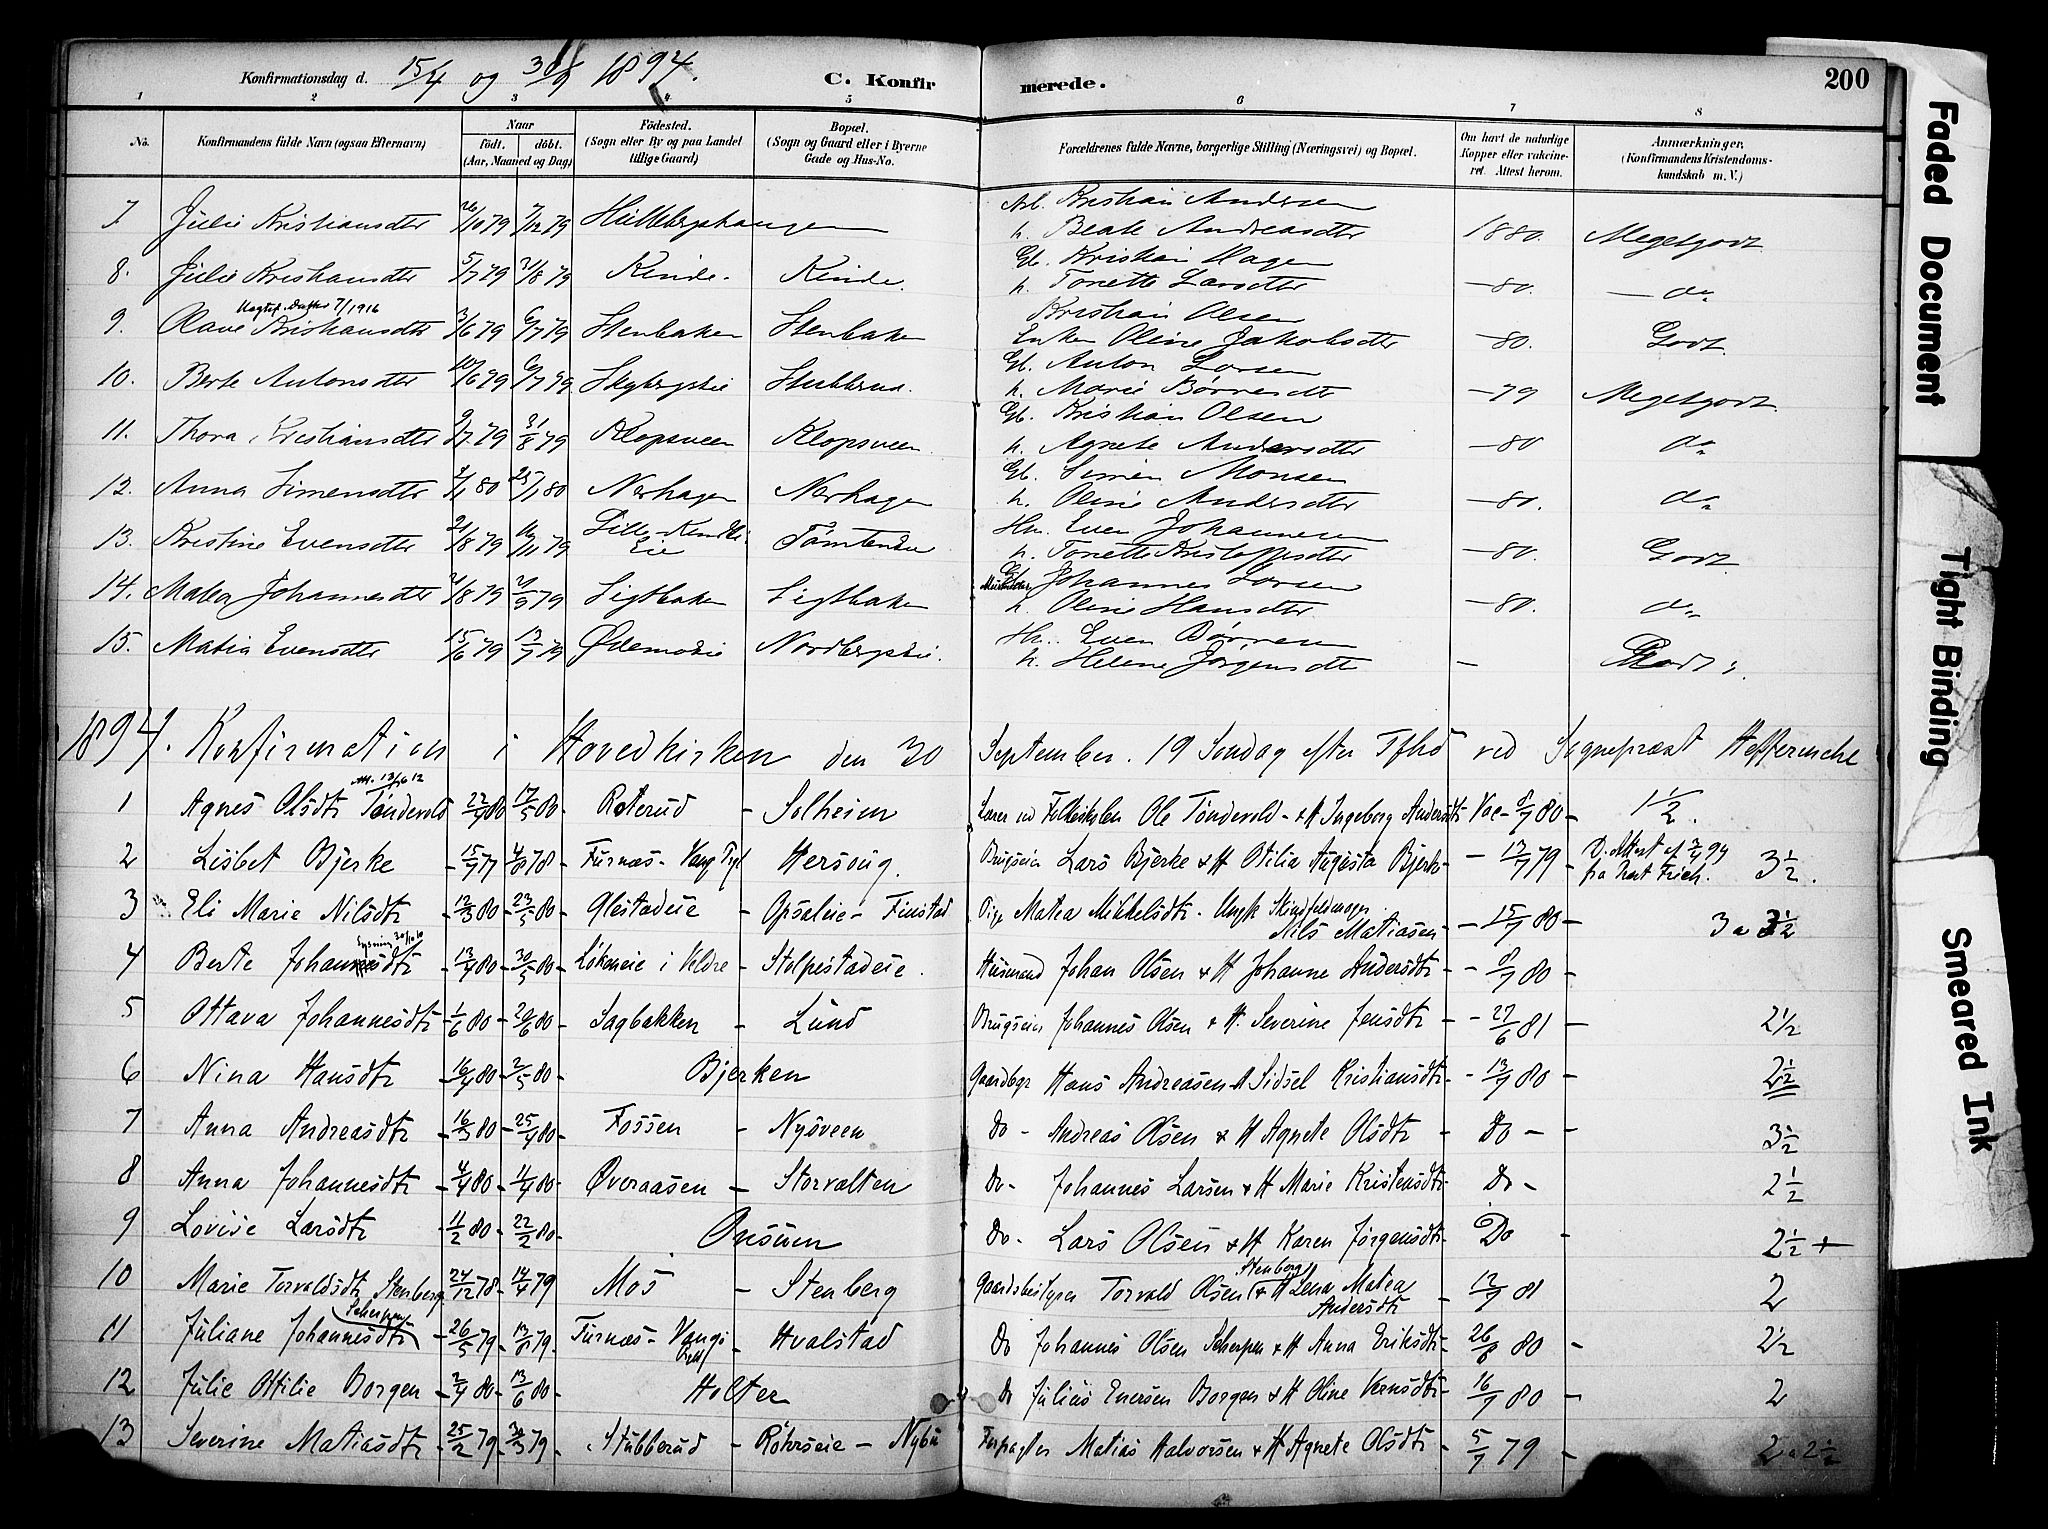 Konfirmationsdag d. 15/4 og 30/9 1894. C. Konfirmerede. 200
1 2 3 4 5 6 7 8
No. Konfirmandens fulde Navn (ogsaa Efternavn) Naar Födt. döbt. (Aar, Maaned og Dag) Födested. (Sogn eller By og paa Landet tillige Gaard) Bopæl. (Sogn og Gaard eller i Byerne Gade og Hus-No. Forældrenes fulde Navne, borgerlige Stilling (Næringsvei) og Bopæl. Om havt de naturlige Kopper eller vakcineret. Attest herom. Anmærkninger. (Konfirmandens Kristendomskundskab m. V.)
7 Julie Kristiansdtr 26/10 79 7/12 79 Arb. Kristian Andersen
h. Beate Andreasdtr 1880. Megetgodt
8. Julie Kristiansdtr 5/7 79 31/8 79 Kinde. Kinde. Gb. Kristian Hagen
h. Tonette Larsdtr —80. — do
9. Kristiansdtr 3/6 79 6/7 79 Stenbaken Stenbaken Kristian Olsen
Enken Oline Jakobsdtr —80. Godt
10. Berte Antonsdtr 10/6 79 6/7 79 Skybergseie Stubberud. Gb. Anton Larsen
h. Marie Børresdtr —79 Megetgodt
11. Thora Kristiansdtr 9/7 79 31/8 79 Klopsveen Klopsveen. Gb. Kristian Olsen
h. Agnete Andersdtr —80 do
12. Anna Simensdtr 80 25/1 80 Nerhagen Nerhagen Gb. Simen Monsen
h. Oline Andersdtr —80. do
13. Kristine Evensdtr 21/8 79 16/11 79 Lille Eie Tømten Hm. Even Johannesen
h. Tonette Kristoffersdtr —80. Godt
14. Matea Johannesdtr 8 79 21/9 79 Sigtbaken Sigtbaken Johannes Larsen
h. Oline Hansdtr —80. do
15. Matia Evensdtr 15/6 79 13/7 79 Ødemoeie Nordbergseie. Hm. Even Børresen
h. Helene Jørgensdtr — Godt
1894. Konfirmation i Hovedkirken den 30 September. 19 Søndag efter Tfhd ved Sogneprest Heffermehl
1 Agnes Olsdtr Tøndevold 22/4 80 17/5 80 Roterud - Solheim Lærer ved Folkeskolen Ole Tøndevold & H Ingeborg Andersdtr Vac 8/7 80 1½.
2 Lisbet Bjerke 15/ 77 4/8 78 Furnæs - Vang Hersoug. Brugseier Lars Bjerke & H Otilia Augusta Bjerke 17/7 79 V. Attest af 94 3½.
3 Eli Marie Nilsdtr 12/3 80 23/5 80 Glestadeie - Opsaleie - Finstad Pige Matea Mikkelsdtr. Ungk Skindfeldmager Nils Matiasen 15/7 80 3 a 3½
4 Berte Johannesdtr 13/4 80 30/5 80 Løkeneie i Veldre - Stolpestadeie. Husmand Johan Olsen & H Johanne Andersdtr 9/7 80
5 Ottava Johannesdtr 1/6 80 20/6 80 Sagbakken - Lund Brugseier Johannes Olsen & H. Severine Jensdtr 27/6 81 2½
6 Nina Hansdtr 16/4 80 2/5 80 Bjerken Gaardbgr Hans Andreasen & H Sidsel Kristiansdtr 13/7 80 2½
7 Anna Andreasdtr 16/3 80 25/4 80 Fossen - Nysveen Do Andreas Olsen & H Agnete Olsdtr Do 3½
8 Anna Johannesdtr 80 80 Øveraasen - Storvalten Do Johannes Larsen & H Marie Kristensdtr Do 2½
9 Lovise Larsdtr 11/2 80 22/2 80 Onsuen Do Lars Olsen & H Karen Jørgensdtr Do 2½ +
10 Marie Torvaldsdtr Stenberg 24/12 78 14/4 79 Mos - Stenberg Gaardsbestyrer Torvald Olsen Stenberg & H Lena Matea Andersdtr 12/7 81 2
11 Juliane Johannesdtr Scherpen 26/5 79 13/ 79 Furnæs - Vangs - Hvalstad Do Johannes Olsen Scherpen & H Anna Eriksdtr 26/8 80 2½
12 Julie Ottilie Borgen 2/4 80 13/6 80 Holter Do Julius Evensen Borgen & H Oline 16/7 80 2
13 Severine Matiasdtr 25/2 79 30/3 79 Stubberud - Røhrseie - Nybu Forpagter Matias Halvorsen & H Agnete Olsdtr 5/7 79 2 a 2½
Faded Document
Tight Binding
Smeared Ink